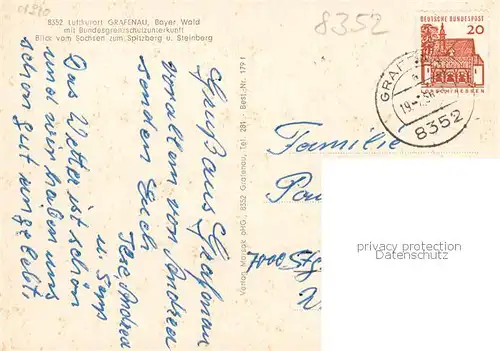 8352 Luftkurort GRAFENAU, Bayer. Wald
mit Bundesgrenzschutzunterkunft
Blick vom Sachsen zum Spitzberg u. Steinberg
8352
DEUTSCHE BUNDESPOST
20
GRAF
8352
Gruß aus Grafenau
vor allem von Andrea
senden Euch
Andrea
u. Sepp
Das Wetter ist schön
und wir haben uns
schon gut eingelebt.
Verlag Morsak oHG, 8352 Grafenau, Tel. 281 - Best.-Nr. 179 f
Familie
privacy protection
Datenschutz